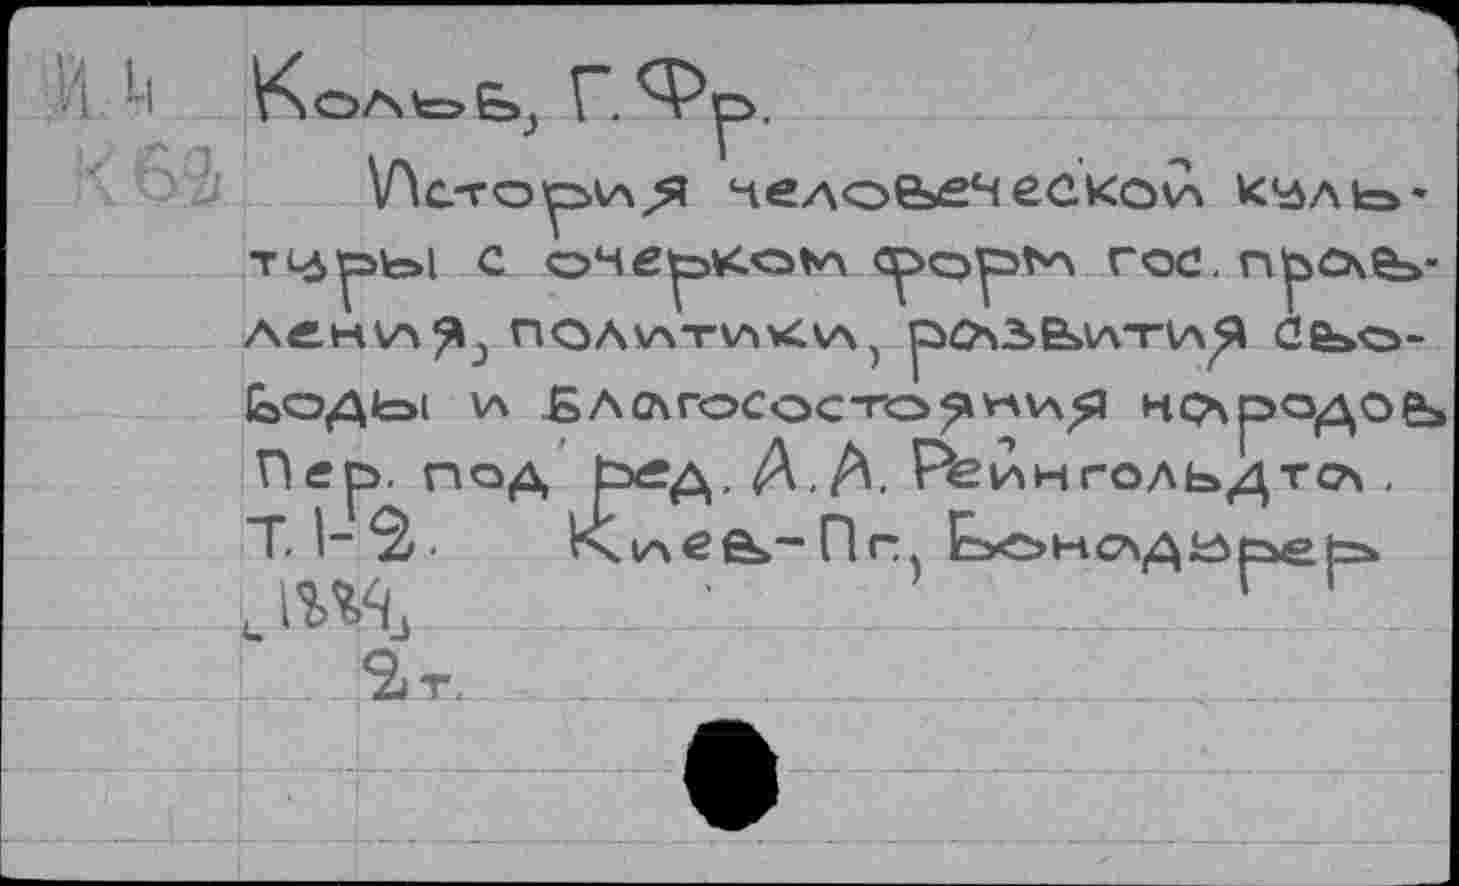 И 4 Кольб, Г. Фр.
К 62 История человеческой куль-
туры с очерком форм гос. прав-
ления, политики, развития сво-
боды и благосостояния народов
Пер. под ред. А. А. Рейнгольдта.
Т. 1-2. Киев-Пг., Бонадурер
2 т.